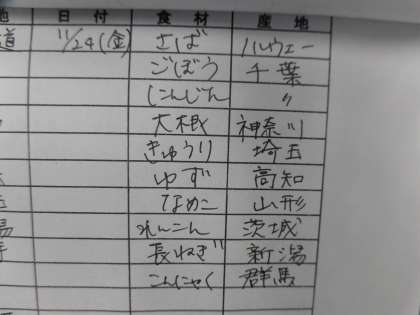 地 日付 食材 産地
道 11/24(金) さば ノルウェー
ごぼう 千葉
にんじん 〃
大根 神奈川
きゅうり 埼玉
ゆず 高知
なめこ 山形
れんこん 茨城
長ねぎ 新潟
こんにゃく 群馬